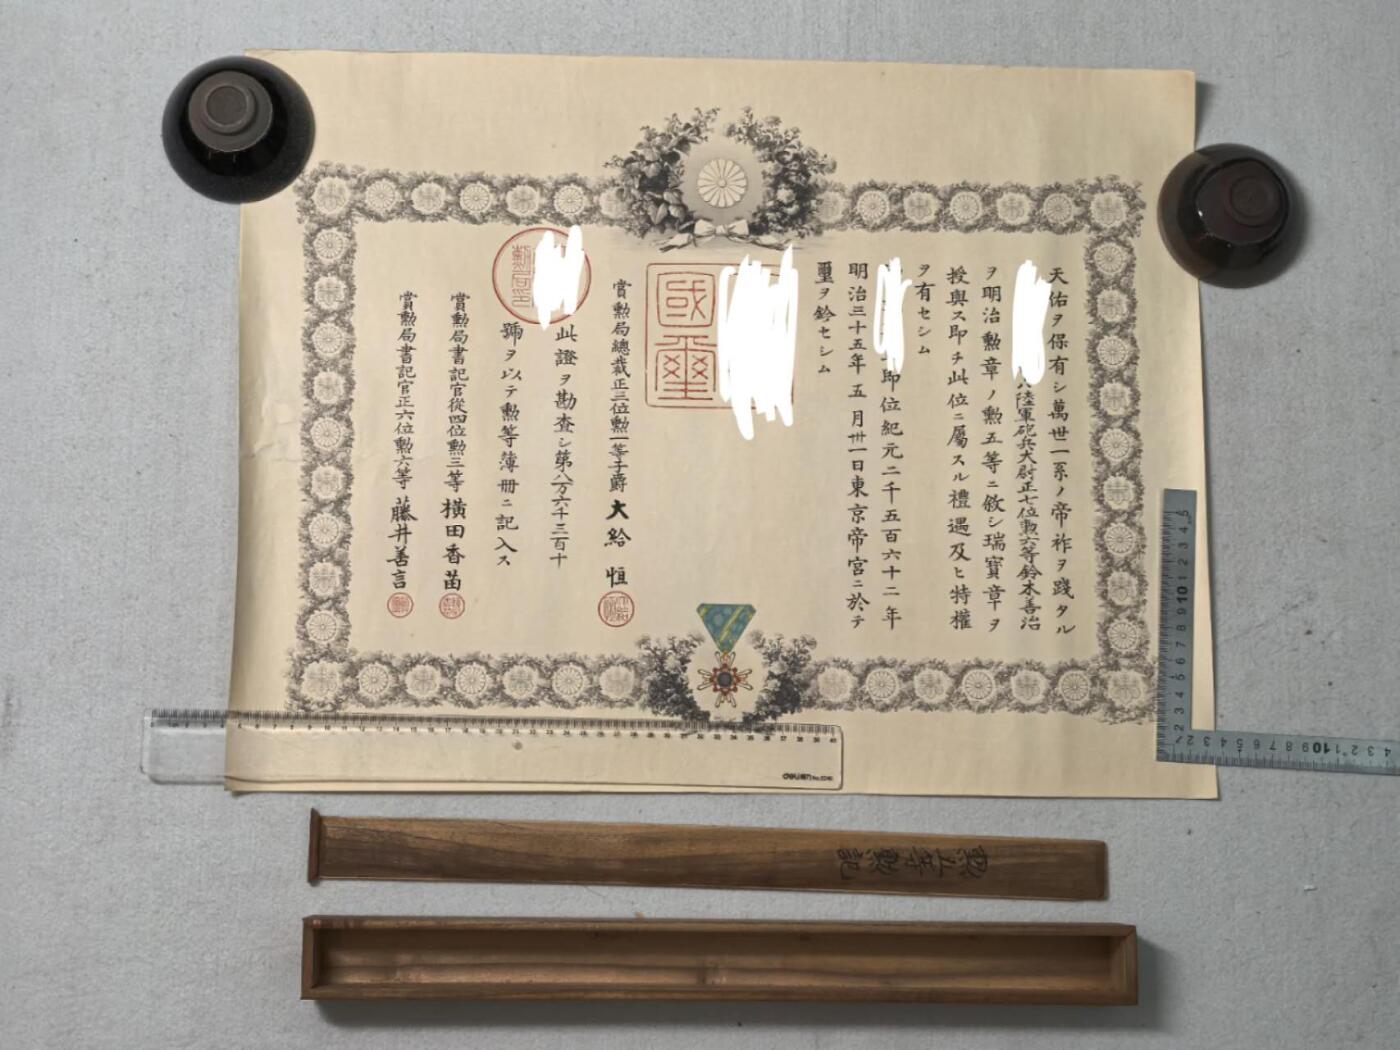 天佑ヲ保有シ萬世一系ノ帝祚ヲ踐タル
陸軍砲兵大尉正七位勲六等鈴木善治
ヲ明治勲章ノ勲五等ニ敘シ瑞寶章ヲ
授與ス即チ此位ニ屬スル禮遇及ヒ特權
ヲ有セシム
即位紀元二千五百六十二年
明治三十五年五月卅一日東京帝宮ニ於テ
璽ヲ鈐セシム
國璽
賞勲局總裁正三位勲一等子爵大給 恒
此證ヲ勘査シ第八万六千三百十
號ヲ以テ勲等簿冊ニ記入ス
勲局印
賞勲局書記官從四位勲三等横田香苗
賞勲局書記官正六位勲六等藤井善言
deli
勲五等勲記